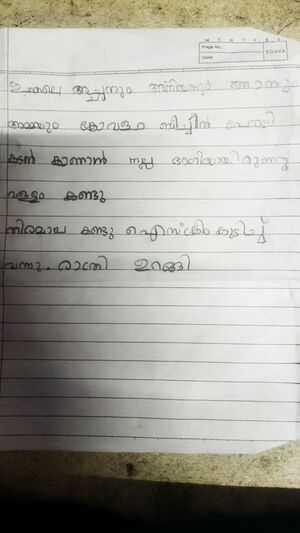 M T W T F S S
Page No.:
Date:
YOUVA
ഇന്നലെ അച്ഛനും അനിയനും ഞാനും
അമ്മയും കോവളം ബീച്ചിൽ പോയി
കടൽ കാണാൻ നല്ല ഭംഗിയായിരുന്നു
വള്ളം കണ്ടു
തിരമാല കണ്ടു ഐസ്ക്രീം കുടിച്ച്
വന്നു. രാത്രി ഉറങ്ങി